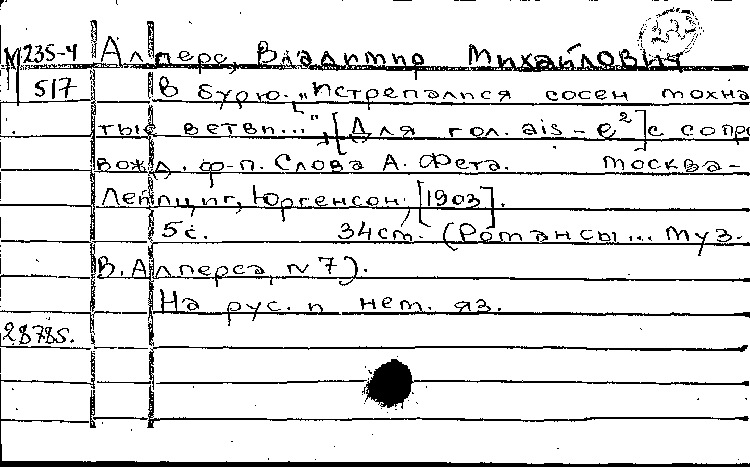 М 235-4 Алперс, Владимир Михайлович
517 В бурю. „Истрепалися сосен мохна
тые ветви...", [Для гол. ais - e²] с сопро
вожд. ф-п. Слова А. Фета. Москва-
Лейпциг, Юргенсон, [1903].
5с. 34см. (Романсы... муз.
В. Алперса, N 7).
На рус. и нем. яз.
28785.